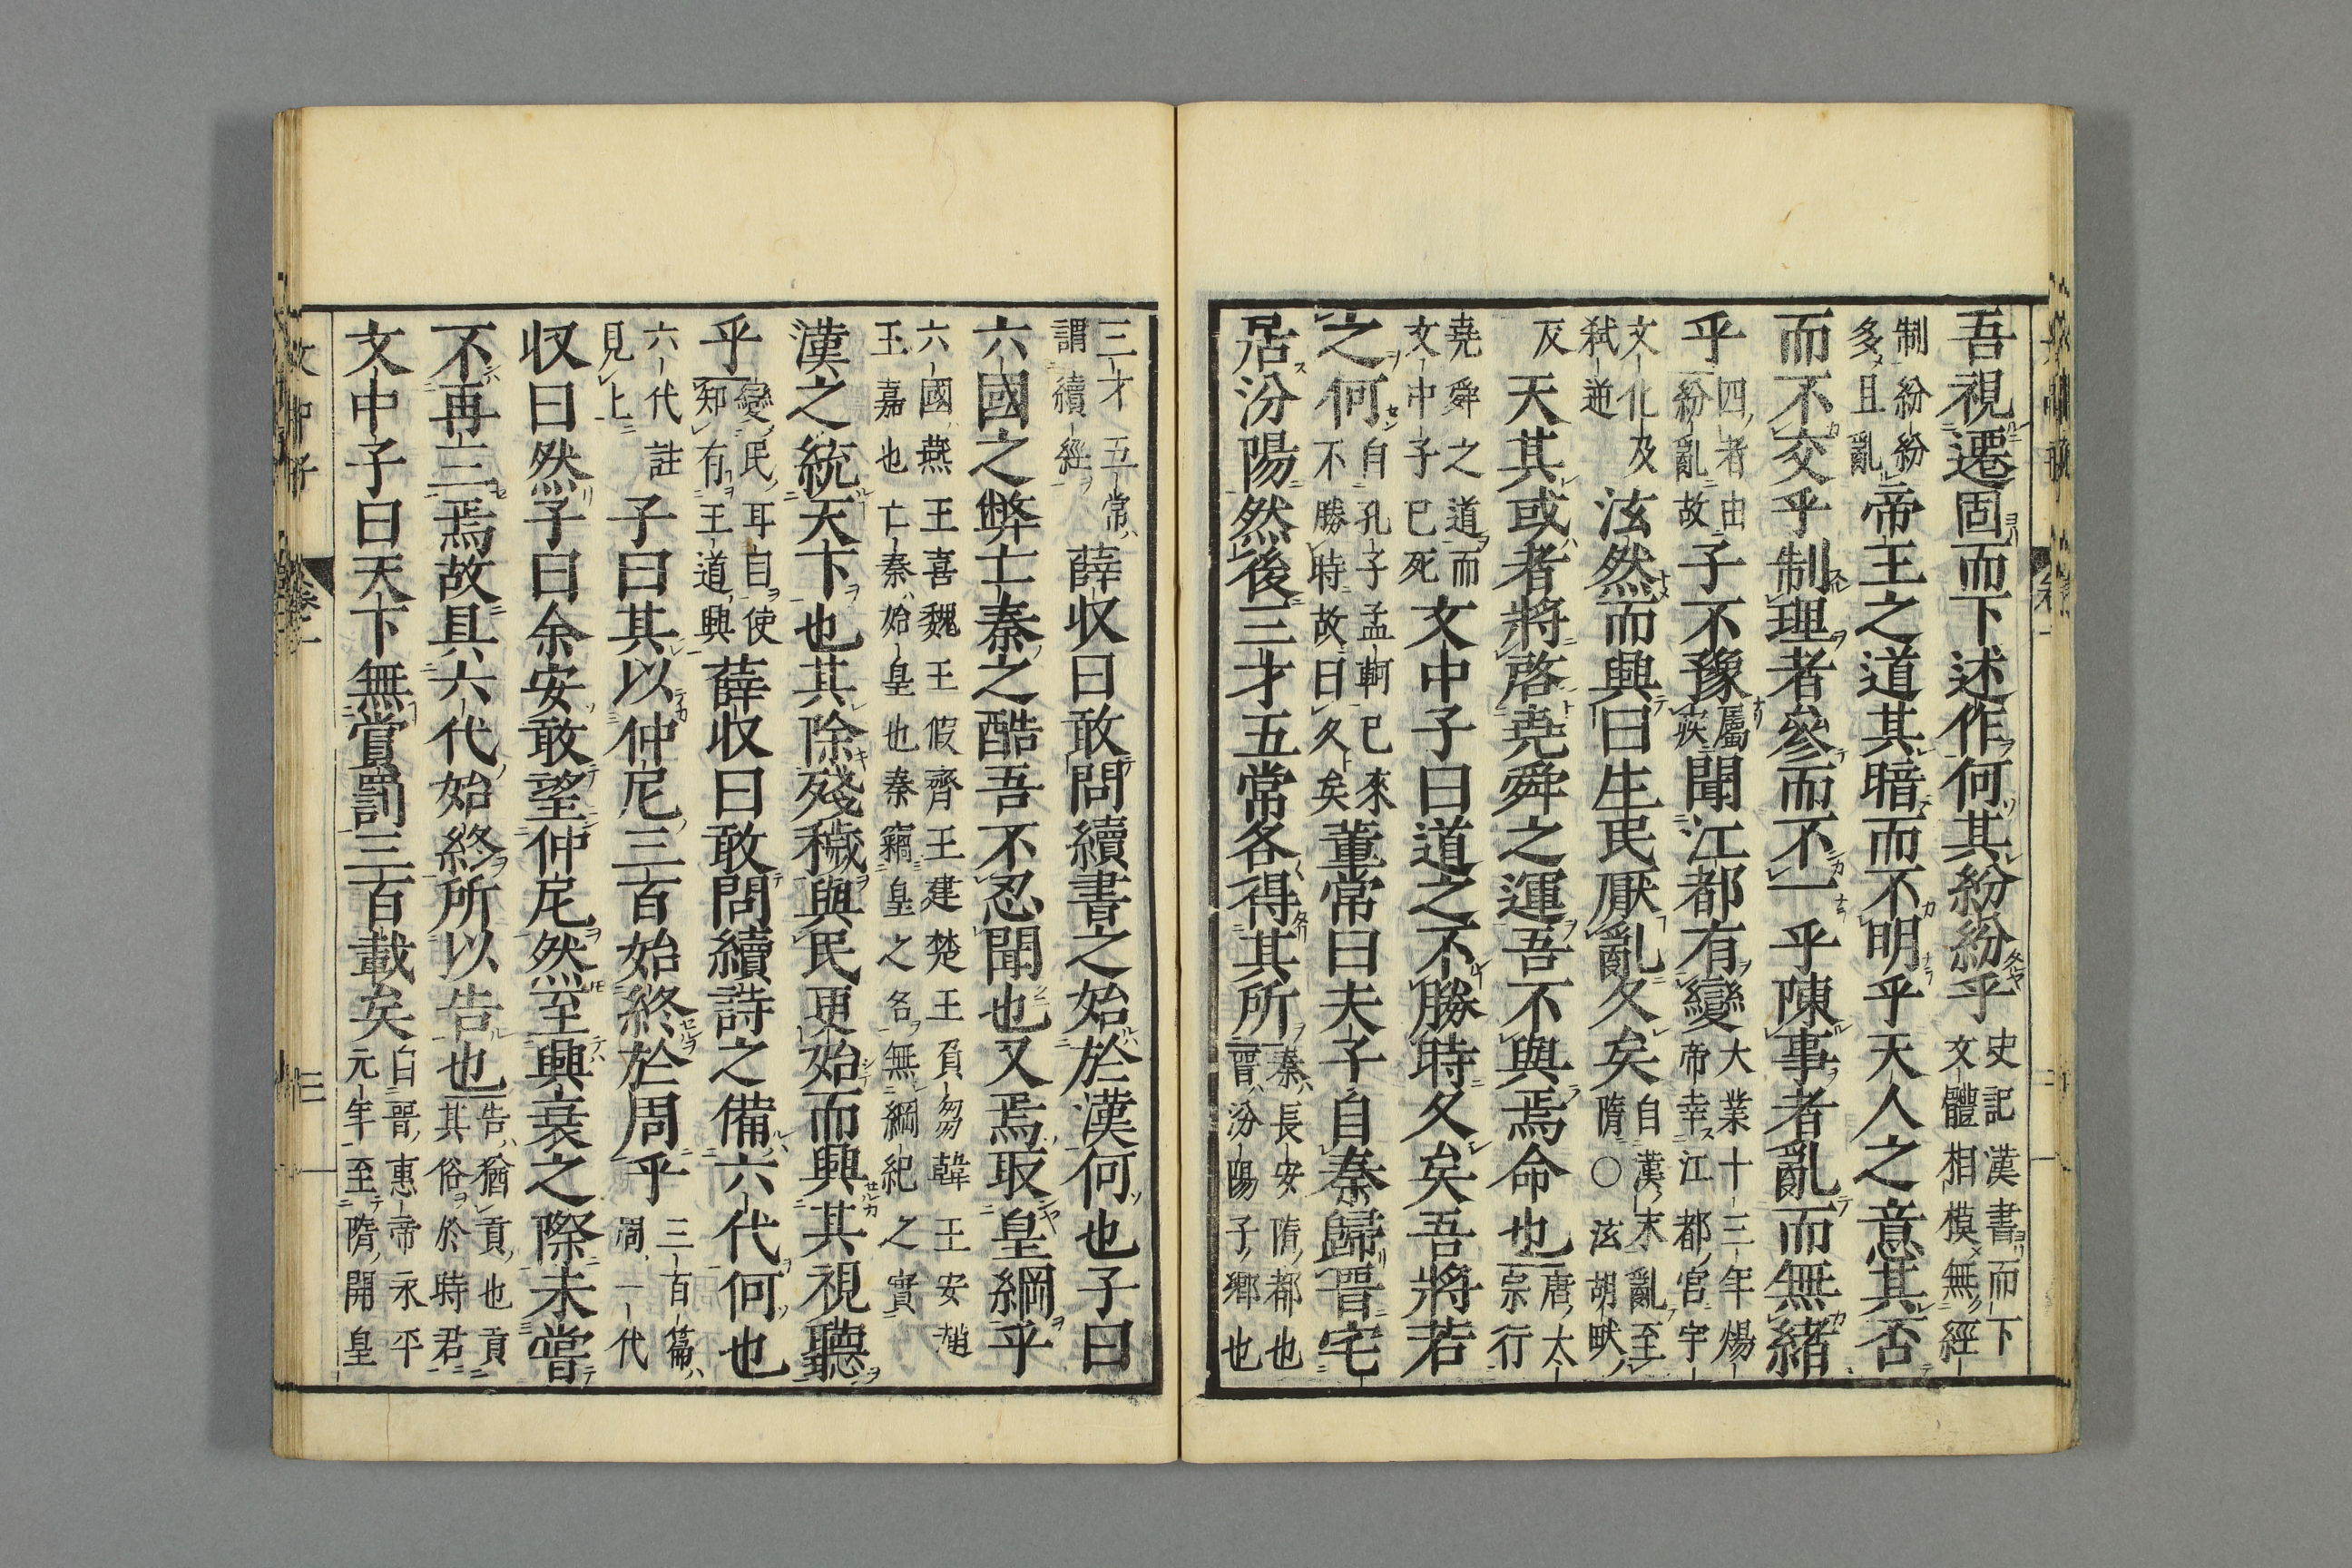 吾視遷固而下述作何其紛紛乎史記漢書而下文體相模無經
制紛紛多且亂帝王之道其暗而不明乎天人之意其否
而不交乎制理者參而不一乎陳事者亂而無緒
乎四者由紛亂故子不豫屬疾聞江都有變大業十三年煬帝幸江都宮宇
文化及弑逆泫然而興曰生民厭亂久矣自漢末亂至隋〇泫胡畎
反天其或者將啓堯舜之運吾不與焉命也唐太宗行
堯舜之道而文中子已死文中子曰道之不勝時久矣吾將若
之何自孔子孟軻已來不勝時故曰久矣董常曰夫子自秦歸晉宅
居汾陽然後三才五常各得其所秦長安隋都也晉汾陽子鄉也
三才五常謂續經薛収曰敢問續書之始於漢何也子曰
六國之弊亡秦之酷吾不忍聞也又焉取皇綱乎
六國燕王喜魏王假齊王建楚王負芻韓王安趙王嘉也亡秦始皇也秦竊皇之名無綱紀之實
漢之統天下也其除殘穢與民更始而興其視聽
乎變民耳目使知有王道興薛収曰敢問續詩之備六代何也
六代註見上子曰其以仲尼三百始終於周乎三百篇周一代
収曰然子曰余安敢望仲尼然至興衰之際未嘗
不再三焉故具六代始終所以告也告猶貢也貢其俗於時君
文中子曰天下無賞罰三百載矣自晉惠帝永平元年至隋開皇
文中子
卷一
三